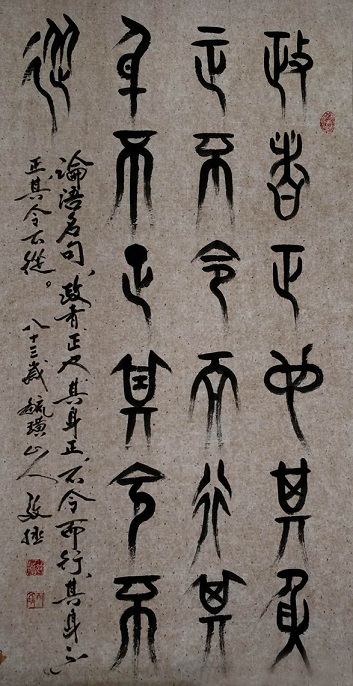 政者正也其身
正不令而行其
身不正其令不
從
論語名句、政者正也其身正、不令而行、其身不
正其令不從。八十三歲毓璜山人